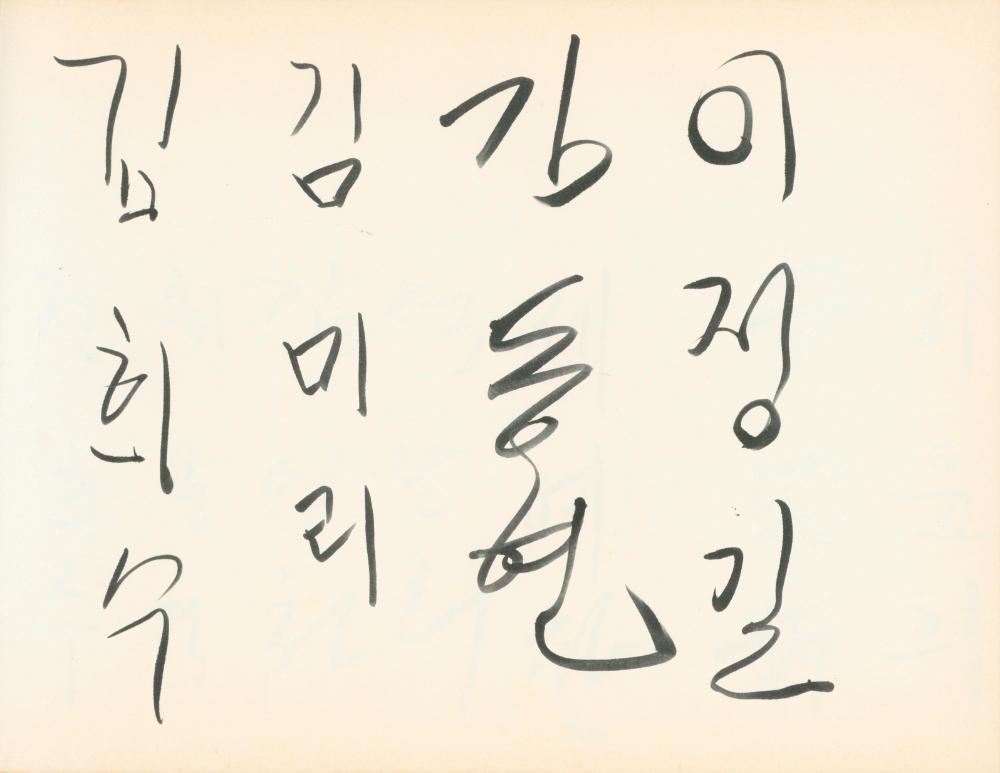 이정길
김동현
김미리
김희수